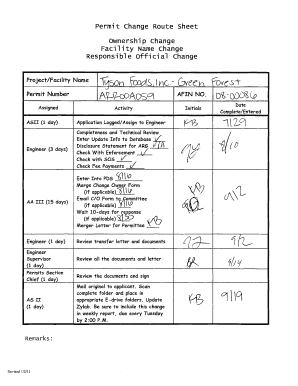 Permit Change Route Sheet
Ownership Change
Facility Name Change
Responsible Official Change
Project/Facility Name Tyson Foods, Inc - Green Forest
Permit Number ARR00A059 AFIN NO. 08-00086
Assigned Activity Initials Date Complete/Entered
ASII (1 day) Application Logged/Assign to Engineer KB 7/29
Engineer (3 days) Completeness and Technical Review
Enter Update Info to Database ✓
Disclosure Statement for ARG
Check With Enforcement ✓
Check with SOS ✓
Check Fee Payments ✓
8/10
AA III (15 days) Enter Into PDS 8/16
Merge Change Owner Form
(if applicable) 8/16
Email C/O Form to Committee
(if applicable) 8/16
Wait 10-days for response
(if applicable) 8/30
Merger Letter for Permittee
9/2
Engineer (1 day) Review transfer letter and documents 9/2
Engineer Supervisor (1 day) Review all the documents and letter 9/14
Permits Section Chief (1 day) Review the documents and sign
AS II (1 day) Mail original to applicant. Scan
complete folder and place in
appropriate E-drive folders. Update
Zylab. Be sure to include this change
in weekly report, due every Tuesday
by 2:00 P.M.
KB 9/19
Remarks: